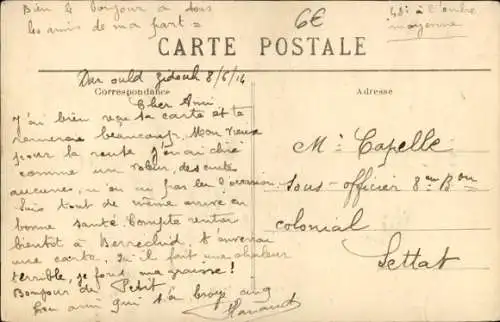 Bien le bonjour à tous
les amis de ma part =
6€
48° à l'ombre
moyenne
CARTE POSTALE
Correspondance
Adresse
Dar ould Zidouh 8/6/14
Cher Ami
J'ai bien reçu ta carte et te
remercie beaucoup. Mon vieux
pour la route j'en ai chié
comme un voleur, des cuites
aucunes, n'en ai pas eu l'occasion
Suis tout de même arrivé en
bonne santé. Compte rentrer
bientôt à Berrechid, t'enverrai
une carte, Qu'il fait une chaleur
terrible, je fond ma graisse!
Bonjour de Petit
Ton ami qui t'a
Mr Capelle
Sous-officier 8em Bon
colonial
Settat